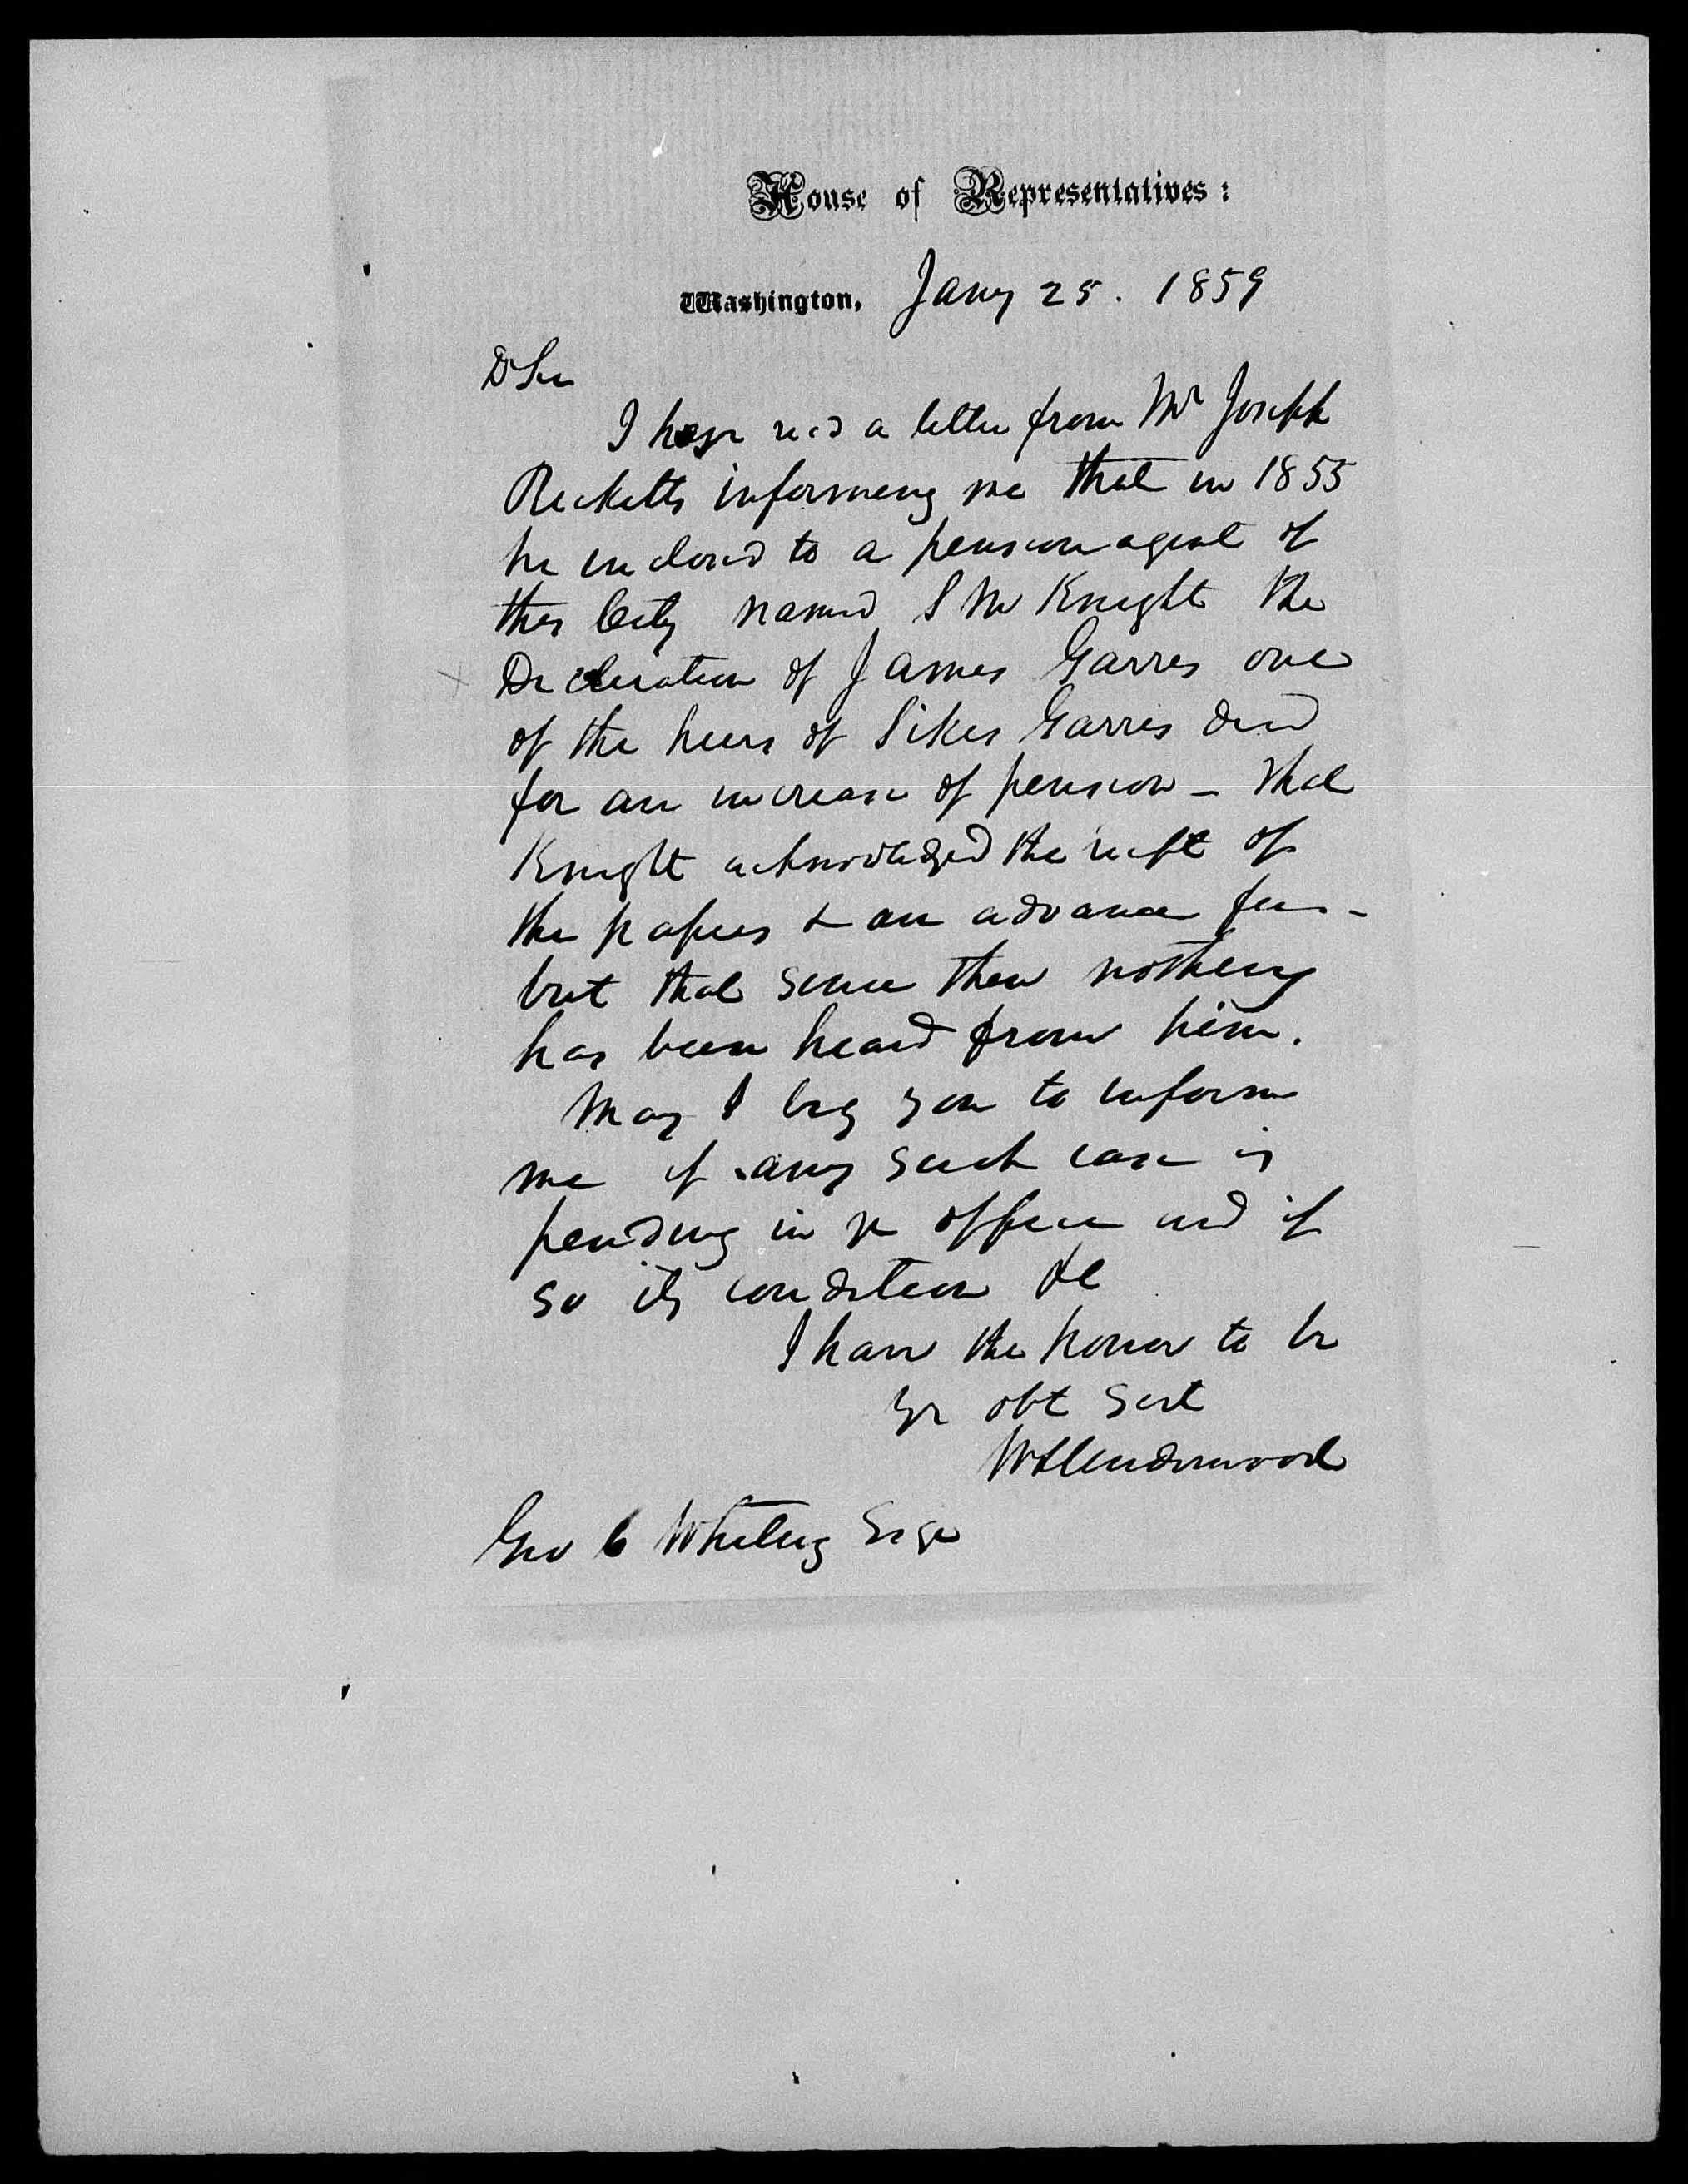 House of Representatives:
Washington, Jany 25. 1859
D Sir
I have recd a letter from Mr Joseph
Ricketts informing me that in 1855
he inclosed to a pension agent of
this City named S M Knight the
Declaration of James Garris one
of the heirs of Sikes Garris decd
for an increase of pension - that
Knight acknowledged the rect of
the papers & an advance fee -
but that since then nothing
has been heard from him.
May I beg you to inform
me if any such case is
pending in yr office and if
so its condition &c
I have the honor to be
yr obt Servt
Underwood
Geo C Whiting Esqr